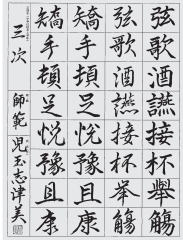 弦歌酒讌接杯舉觴
弦歌酒讌接杯舉觴
矯手頓足悅豫且康
矯手頓足悅豫且康
三次 師範 児玉志津美